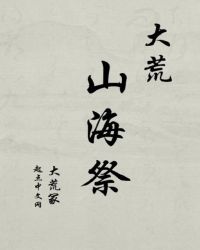 大荒
山海祭
大荒冢
起点中文网